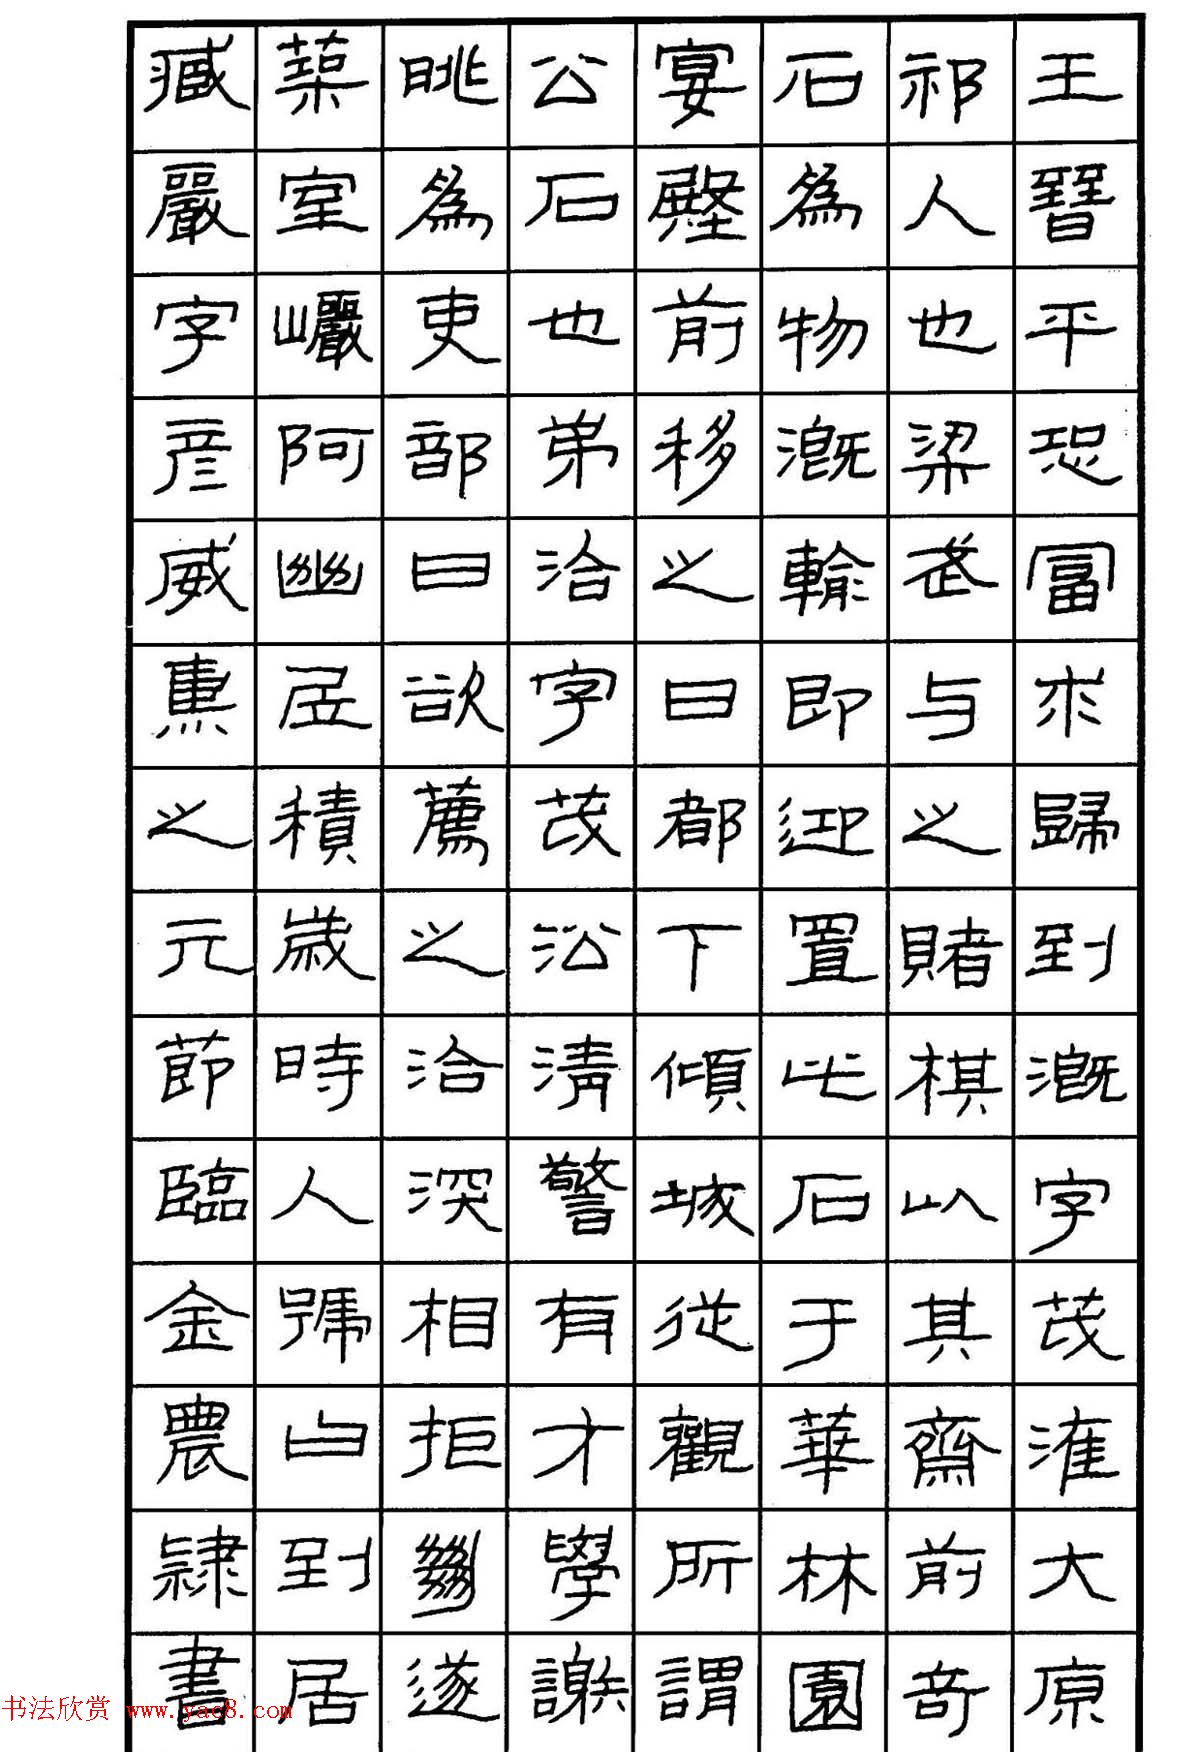 王晉平恐富求歸到溉字茂灌大原
祁人也梁武与之賭棋以其齋前奇
石為物溉輸即迎置此石于華林園
宴殿前移之曰都下傾城從觀所謂
公石也弟洽字茂㳂清警有才學謝
眺為吏部曰欲薦之洽深相拒絕遂
築室巖阿幽居積歲時人號曰到居
臧嚴字彥威燾之元節臨金農隸書
书法欣赏 www.yac8.com